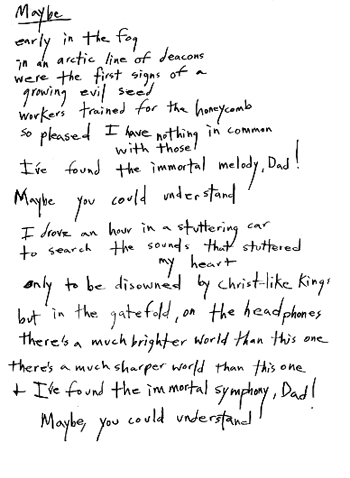 Maybe
early in the fog
in an arctic line of deacons
were the first signs of a
growing evil seed
workers trained for the honeycomb
so pleased I have nothing in common
with those!
I've found the immortal melody, Dad!
Maybe you could understand
I drove an hour in a stuttering car
to search the sounds that stuttered
my heart
only to be disowned by Christ-like Kings
but in the gatefold, on the headphones
there's a much brighter world than this one
there's a much sharper world than this one
+ I've found the immortal symphony, Dad!
Maybe, you could understand!